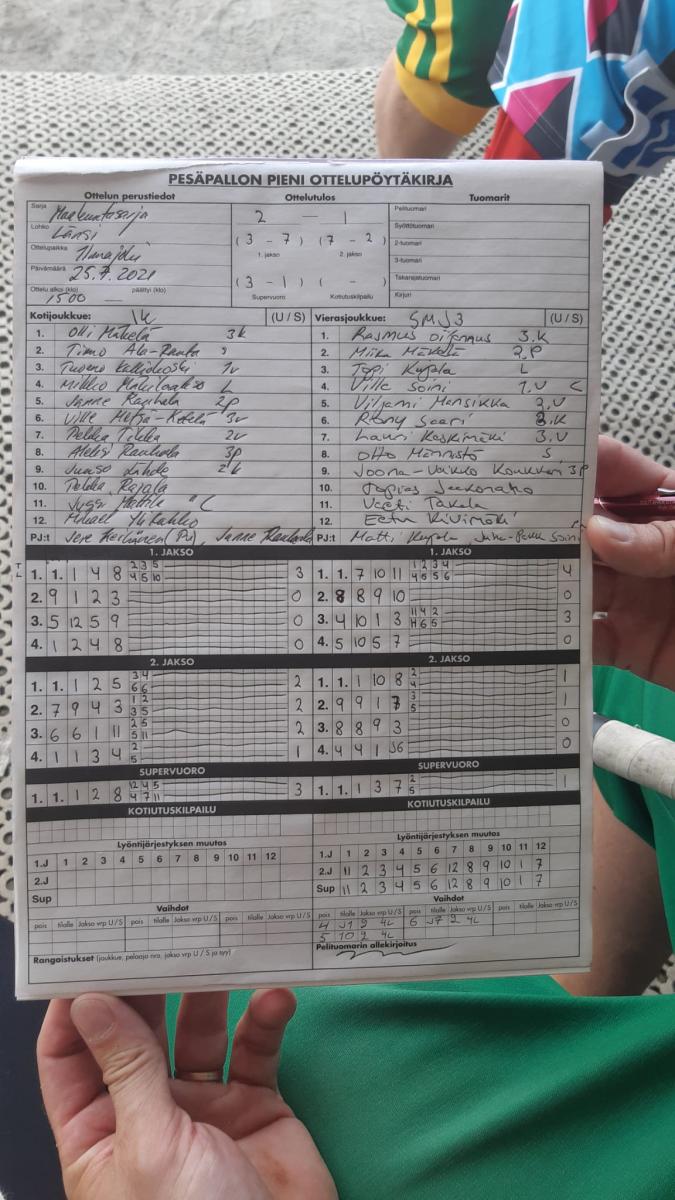 PESÄPALLON PIENI OTTELUPÖYTÄKIRJA
Ottelun perustiedot Ottelutulos Tuomarit
Sarja Maakuntasarja 2 — 1 Pelituomari
Lohko Länsi (3 - 7) (7 - 2) Syöttötuomari
Ottelupaikka Ilmajoki 1. jakso 2. jakso 2-tuomari
Päivämäärä 25.7.2021 3-tuomari
Ottelu alkoi (klo) 1500 päättyi (klo) — (3 - 1) ( - ) Takarajatuomari
Supervuoro Kotiutuskilpailu Kirjuri
Kotijoukkue: IK (U / S) Vierasjoukkue: SMJ3 (U / S)
1. Olli Mäkelä 3k 1. Rasmus 3.K
2. Timo Ala-Rauta 2. Miika Mäkelä 2.P
3. Tuomo Kalliokoski 1v 3. Topi Kujala L
4. Mikko L 4. Ville Soini 1.V C
5. Janne Rauhala 2p 5. Viljami Mansikka 2.V
6. Ville Metsä-Ketelä 3v 6. Romy Saari 2.K
7. Pekka Tikka 2v 7. Lauri Koskimäki 3.V
8. Aleksi Rauhala 3p 8. Otto Männistö S
9. Juuso 2k 9. Joona-Veikko Koukkari 3P
10. Pekka Rajala 10. Topias
11. Jussi Mattila C 11. Veeti Takala
12. Mikael Ylikahko 12. Eetu Kivimäki
PJ:t Jere (PJ), Janne Rauhala PJ:t Matti Kujala, Juha-Pekka Soini
1. JAKSO 1. JAKSO
1. 1. 1 4 8 2 3 5 4 5 10 3 1. 1. 7 10 11 1 2 3 4 4 5 5 6 4
2. 9 1 2 3 0 2. 8 8 9 10 0
3. 5 12 5 9 0 3. 4 10 1 3 11 4 2 H 6 5 3
4. 1 2 4 8 0 4. 5 10 5 7 0
2. JAKSO 2. JAKSO
1. 1. 1 2 5 3 4 6 6 2 1. 1. 1 10 8 2 4 1
2. 7 9 4 3 1 2 3 5 2 2. 9 9 1 7 3 5 1
3. 6 6 1 11 2 5 5 11 2 3. 8 8 9 3 0
4. 1 1 3 4 2 5 1 4. 4 4 1 J6 0
SUPERVUORO SUPERVUORO
1. 1. 1 2 8 12 4 5 4 7 11 3 1. 1. 1 3 7 2 5 1
KOTIUTUSKILPAILU KOTIUTUSKILPAILU
Lyöntijärjestyksen muutos Lyöntijärjestyksen muutos
1.J 1 2 3 4 5 6 7 8 9 10 11 12 1.J 1 2 3 4 5 6 7 8 9 10 11 12
2.J 2.J 11 2 3 4 5 6 12 8 9 10 1 7
Sup Sup 11 2 3 4 5 6 12 8 9 10 1 7
Vaihdot Vaihdot
pois tilalle Jakso vrp U / S pois tilalle Jakso vrp U / S pois tilalle Jakso vrp U / S pois tilalle Jakso vrp U / S pois tilalle Jakso vrp U / S pois tilalle Jakso vrp U / S
4 J1 2 4L 6 J7 2 4L
5 10 2 4L
Rangaistukset (joukkue, pelaaja nro, jakso vrp U / S ja syy) Pelituomarin allekirjoitus